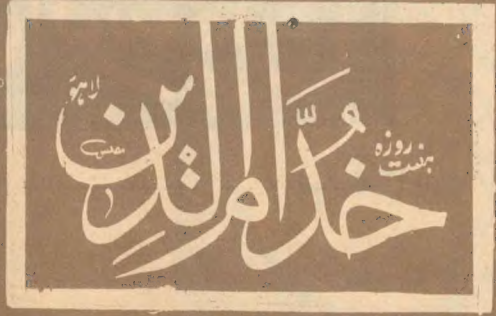 ہفت روزہ
خدّام الدین
لاہور